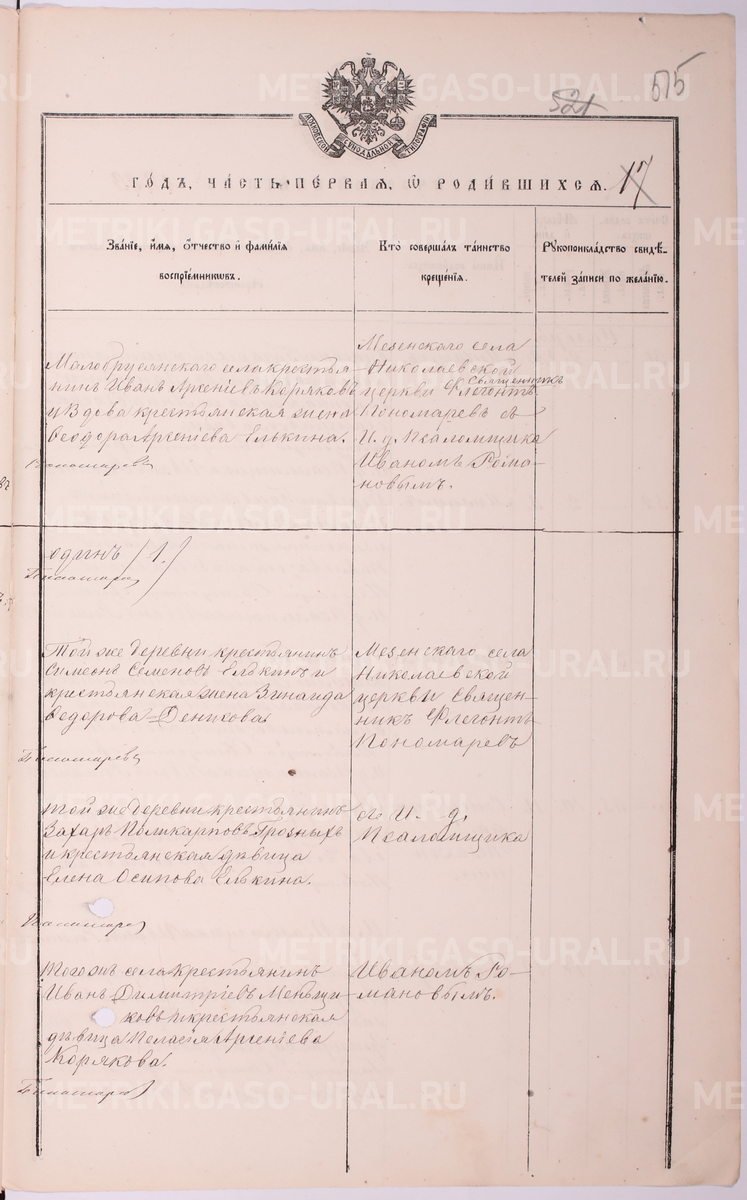 521
515
МОСКОВСКОЙ СѴНОДАЛЬНОЙ ТИПОГРАФІИ
ГО́ДЪ, ЧА́СТЬ ПЕ́РВАЯ, Ѡ РОДИ́ВШИХСѦ. 17
Зва́нїе, и́мя, о́тчество и́ фами́лїя
воспрїе́мниковъ.
Кто̀ соверша́лъ та́инство
креще́нїя.
Рꙋкоприкла́дство свидѣ́-
телей за́писи по жела́нїю.
Малобрусянскаго села крестья-
нинъ Иванъ Арсеніевъ Коряковъ
и Вдова крестьянская жена
Ѳеодора Арсеніева Елькина.
Мезенскаго села
Николаевской
церкви Священникъ
Флегонтъ
Пономаревъ съ
И. д. Псаломщика
Иваномъ Рома-
новымъ.
одинъ /1./
Той же деревни крестьянинъ
Симеонъ Семеновъ Елькинъ и
крестьянская жена Зинаида
Ѳедорова Деникова
Мезенскаго села
Николаевской
церквы Священ-
никъ Флегонтъ
Пономаревъ
той же деревни крестьянинъ
Захаръ Поликарповъ Грозныхъ
и крестьянская дѣвица
Елена Осипова Елькина.
съ И. д.
Псаломщика
Тогожъ села крестьянинъ
Иванъ Димитріевъ Меньщи-
ковъ и крестьянская
дѣвица Пелагія Арсеніева
Корякова.
Иваномъ Ро-
мановымъ.
METRIKI.GASO-URAL.RU